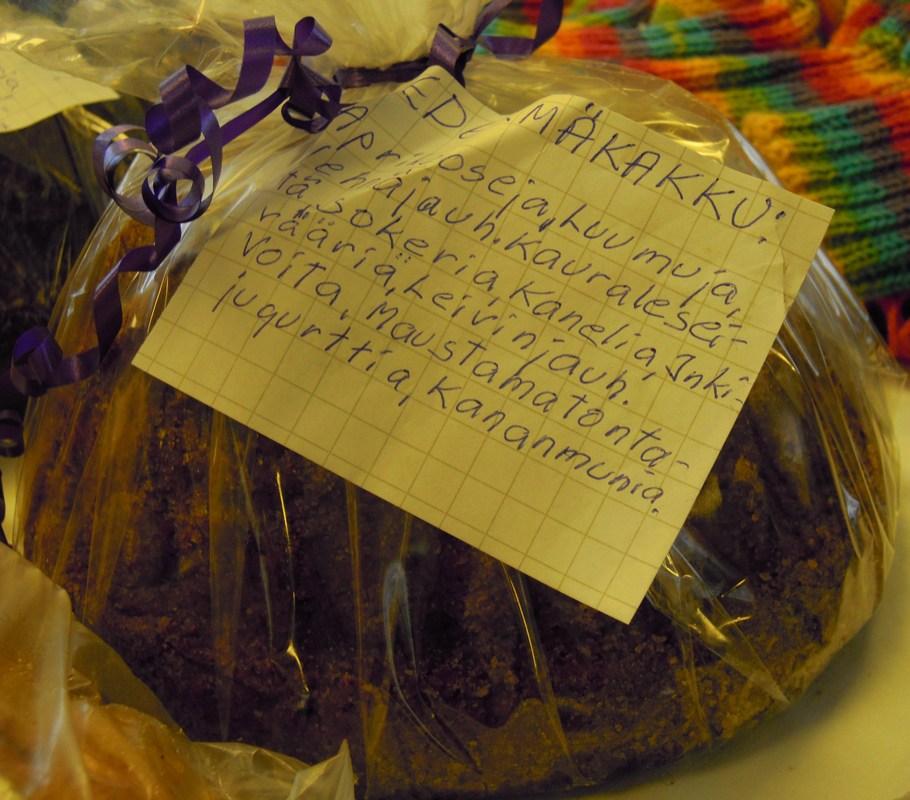 MÄKAKKU:
Aprikooseja, Luumuja,
Vehnäjauh. Kauraleseitä,
sokeria, Kanelia, Inki-
vääriä, Leivinjauh.
Voita, Maustamatonta-
jugurttia, Kananmunia.